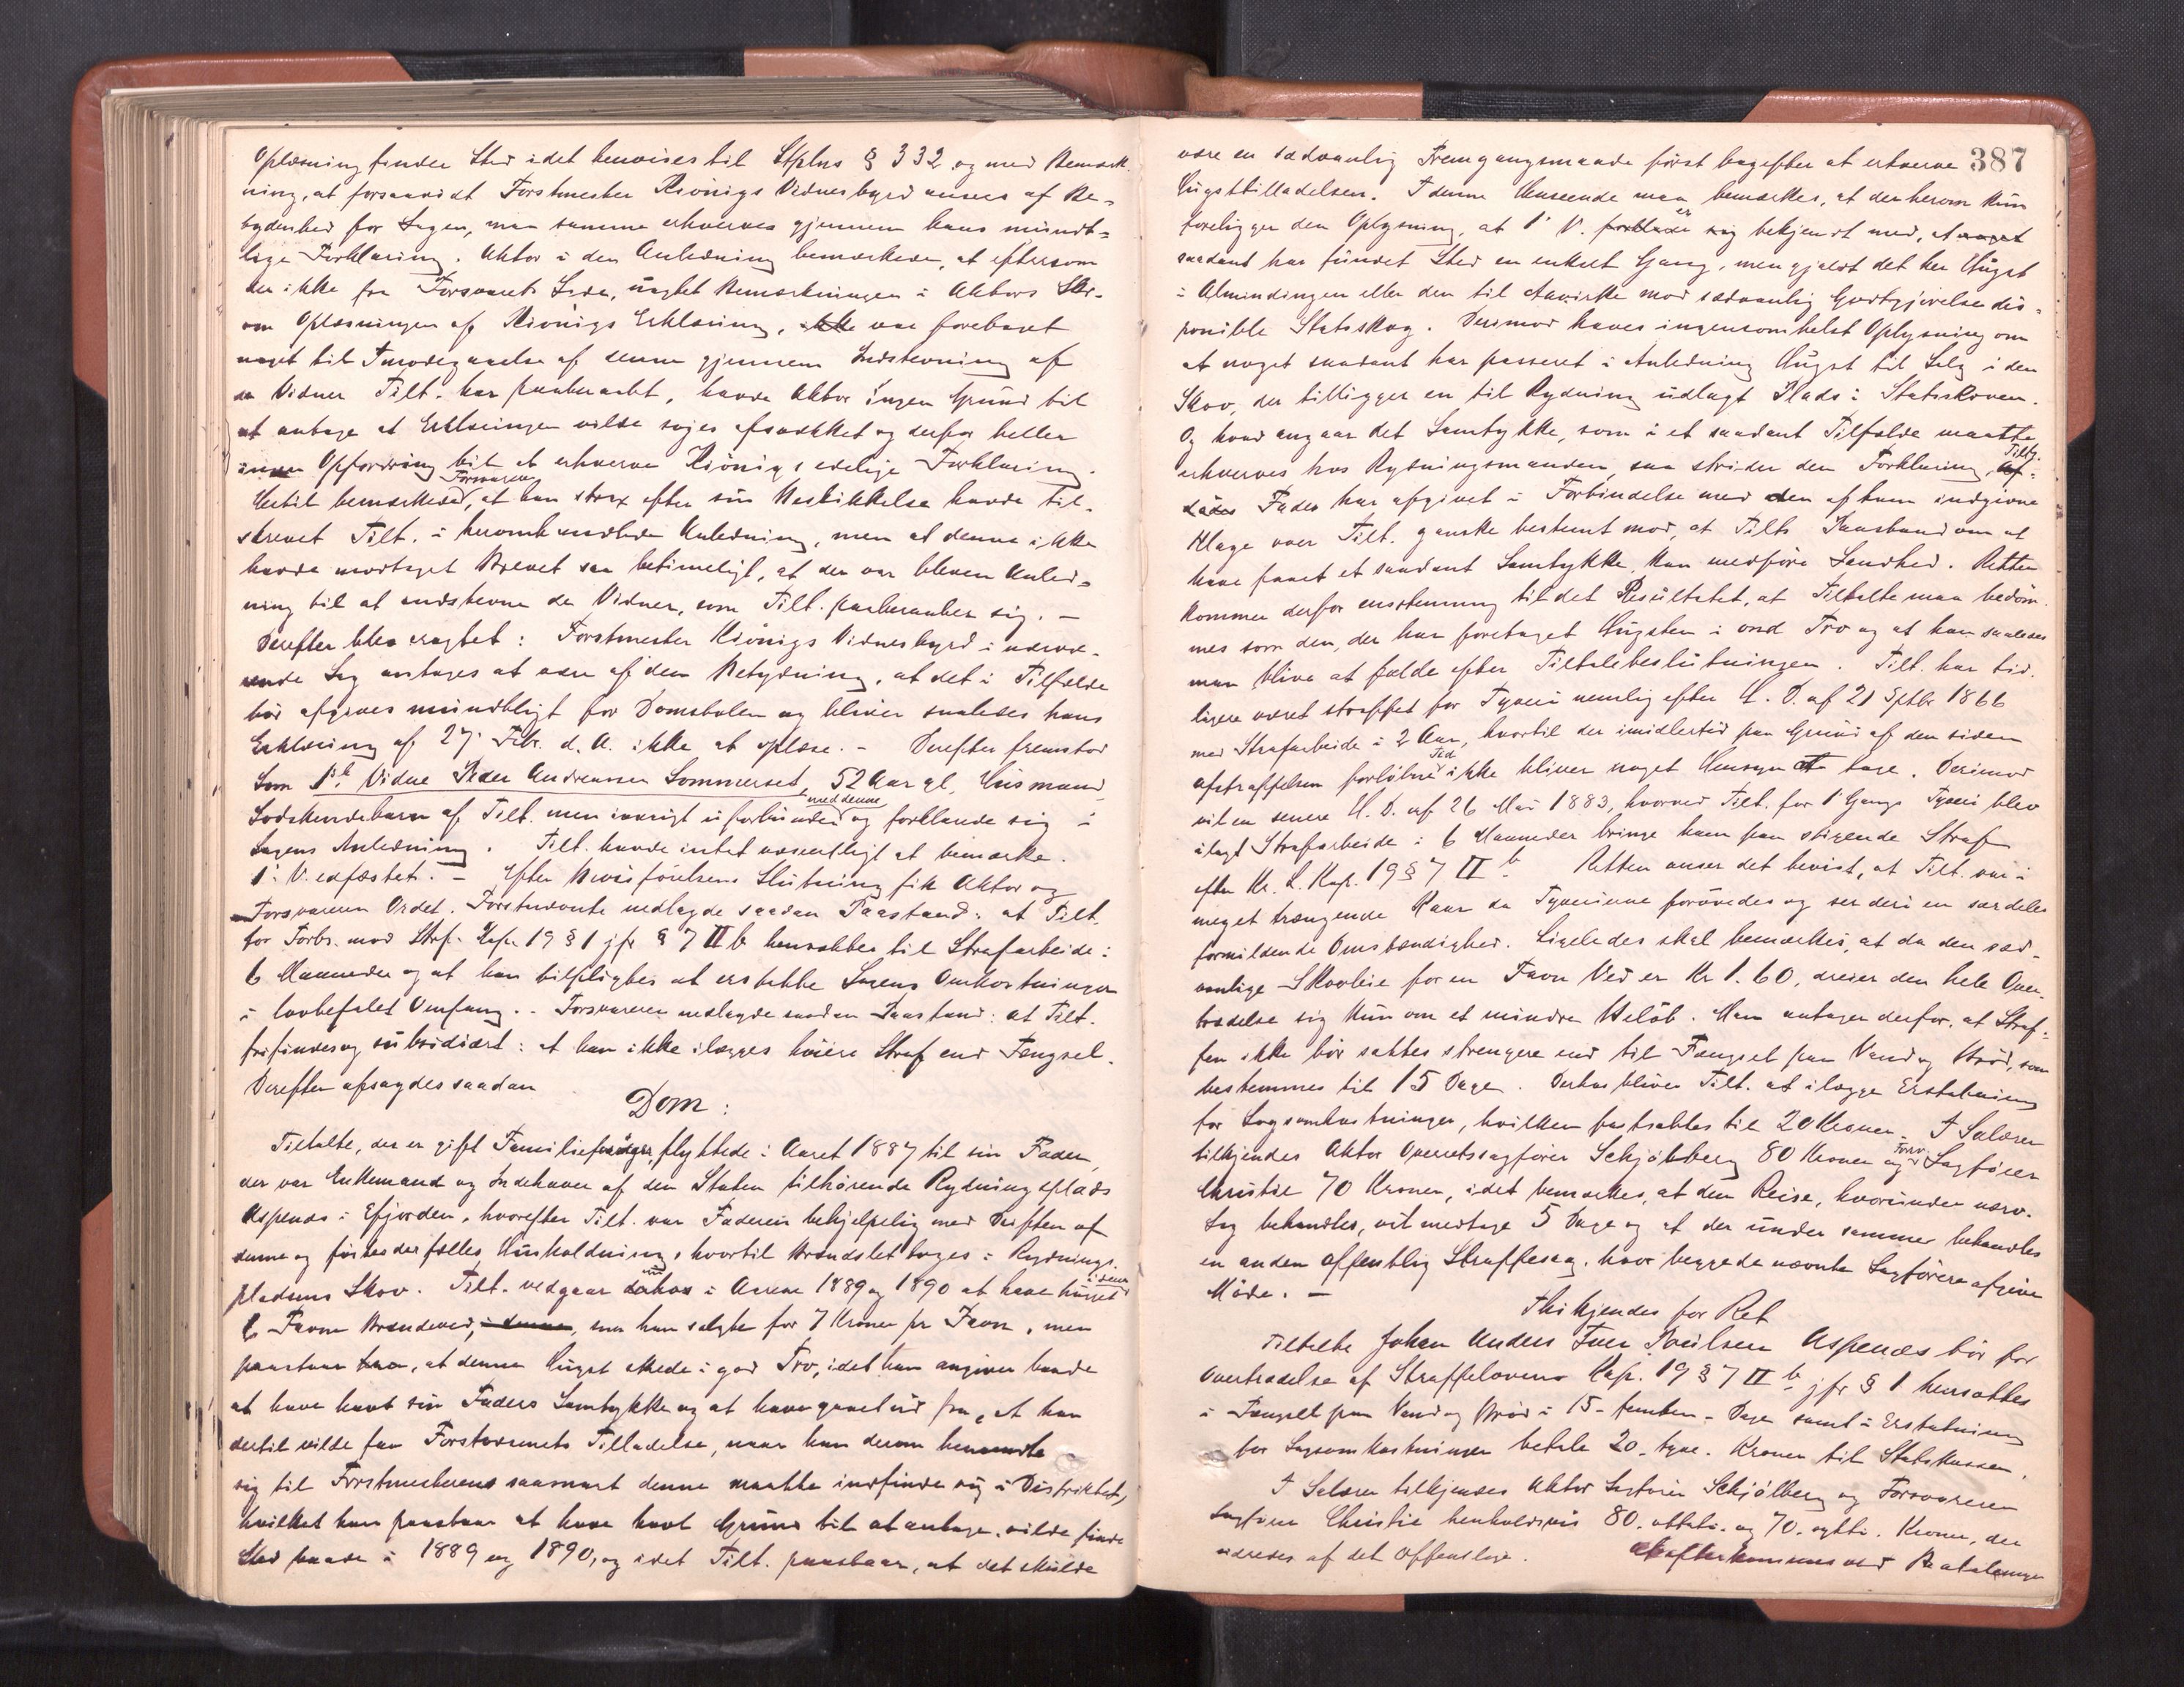 Oplæsning finder Sted idet henvises til Stplvs § 332 og med Bemærk-
ning, at forsaavidt Forstmester Kiönigs Vidnesbyrd ansees af Be-
tydenhed for Sagen, maa samme erhverves gjennem hans mundt-
lige Forklaring. Aktor i den Anledning bemærkede, at eftersom
der ikke fra Forsvarets Side, uagtet Bemærkningen i Aktors Skr.
om Oplæsningen af Kiönigs Erklæring, ikke var forebaret
noget til Imødegaaelse af denne gjennem Indstevning af
de Vidner Tilt. har paaberaabt, havde Aktor ingen Grund til
at antage at Erklæringen vilde søges afsvækket og derfor heller
ingen Opfordring til at erhverve Kiönigs edelige Forklaring.
Hertil bemærkede Forsvareren, at han strax efter sin Beskikkelse havde til-
skrevet Tilt. i heromhandlede Anledning, men at denne ikke
havde modtaget Brevet saa betimeligt, at der var bleven Anled-
ning til at indstevne de Vidner, som Tilt. paaberaaber sig. –
Derefter blev eragtet: Forstmester Kiönigs Vidnesbyrd i nærvæ-
rende Sag antages at være af den Betydning, at det i Tilfælde
bör afgives mundtligt for Domstolen og bliver saaledes hans
Erklæring af 27. Febr. d. A. ikke at oplæse. – Derefter fremstod
Som 1ste Vidne Peder Andreassen Sommerset, 52 Aar gl, Husmand,
Sødskendebarn af Tilt. men iøvrigt uforbunden med denne og forklarede sig i
Sagens Anledning. Tilt. havde intet væsentligt at bemærke.
1. V. edfæstet. – Efter Bevisförelsens Slutning fik Aktor og
Forsvareren Ordet. Førstnævnte nedlagde saadan Paastand: at Tilt.
for Forbr. mod Strf. Kap. 19 § 1 jfr § 7 II b hensættes til Strafarbeide i
6 Maaneder og at han tilpligtes at erstatte Sagens Omkostninger
i lovbefalet Omfang. – Forsvareren nedlagde saadan Paastand: at Tilt.
frifindes og subsidiært: at han ikke ilægges höiere Straf end Fængsel.
Derefter afsagdes saadan
Dom:
Tiltalte, der er gift Familieforsørger, flyttede i Aaret 1887 til sin Fader,
der var Enkemand og Indehaver af den Staten tilhørende Rydningsplads
Aspenæs i Efjorden, hvorefter Tilt. var Faderen behjelpelig med Driften af
denne og førtes der fælles Husholdning, hvortil Brændslet toges i Rydnings-
pladsens Skov. Tilt. vedgaar i Aarene 1889 og 1890 at have hugget i denne
6 Favne Brændeved, i denne, som han solgte for 7 Kroner pr Favn, men
paastaar, at denne Hugst skede i god Tro, idet han angiver baade
at have havt sin Faders Samtykke og at have gaaet ud fra, at han
dertil vilde faa Forstvæsenets Tilladelse, naar han derom henvendte
sig til Forstmesteren saasnart denne maatte indfinde sig i Distriktet,
hvilket han paastaar at have havt Grund til at antage, vilde finde
Sted baade i 1889 og 1890, og idet Tilt. paastaar, at det skulde
387
være en sædvanlig Fremgangsmaade først bagefter at erhverve
Hugsttilladelsen. I denne Henseende maa bemærkes, at der herom kun
foreligger den Oplysning, at 1. V. forklarer sig er bekjendt med, at noget
saadant har fundet Sted en enkelt Gang, men gjaldt det her Hugst
i Almindingen eller den til Afvirke mod sædvanlig Godtgjörelse dis-
ponible Statsskog. Derimod haves ingensomhelst Oplysning om
at noget saadant har passeret i Anledning Hugst til Salg i den
Skov, der tilligger en til Rydning udlagt Plads i Statsskoven.
Og hvad angaar det Samtykke, som i et saadant Tilfælde maatte
erhverves hos Rydningsmanden, saa strider den Forklaring, Tilt.
Fader har afgivet i Forbindelse med den af ham indgivne
Klage over Tilt. ganske bestemt mod, at Tilts Paastand om at
have faaet et saadant Samtykke, kan medføre Sandhed. Retten
kommer derfor enstemmig til det Resultatet, at Tiltalte maa bedöm-
mes som den, der har foretaget Hugsten i ond Tro og at han saaledes
maa blive at fælde efter Tiltalebeslutningen. Tilt. har tid-
ligere været straffet for Tyveri nemlig efter H. D. af 21 Sptbr 1866
med Strafarbeide i 2 Aar, hvortil der imidlertid paa Grund af den siden
afstraffelsen forløbne Tid ikke bliver noget Hensyn at tage. Derimod
vil en senere H. D. af 26 Mai 1883, hvorved Tilt. for 1. Gangs Tyveri blev
ilagt Strafarbeide i 6 Maaneder bringe ham paa stigende Straf
efter Kr. L. Kap. 19 § 7 II b. Retten anser det bevist, at Tilt. var i
meget trængende Kaar da Tyverierne forövedes og ser deri en særdeles
formildende Omstændighed. Ligeledes skal bemærkes, at da den sæd-
vanlige Skovleie for en Favn Ved er Kr 1.60, dreier den hele Over-
trædelse sig kun om et mindre Belöb. Man antager derfor, at Straf-
fen ikke bör sættes strengere end til Fængsel paa Vand og Bröd, som
bestemmes til 15 Dage. Derhos bliver Tilt. at ilægge Erstatning
for Sagsomkostninger, hvilken fastsættes til 20 Kroner. I Salærer
tilkjendes Aktor Overretssagfører Schjölberg 80 Kroner og Forsv. Sagförer
Christie 70 Kroner, idet bemærkes, at den Reise, hvorunder nærv.
Sag behandles, vil medtage 5 Dage og at der under samme behandles
en anden offentlig Straffesag, hvor begge de nævnte Sagförere afgive
Möde. –
Thi kjendes for Ret
Tiltalte Johan Anders Iver Poulsen Aspenæs bör for
Overtrædelse af Straffelovens Kap. 19 § 7 II b jfr § 1 hensættes
i Fængsel paa Vand og Bröd i 15 - femten - Dage samt i Erstatning
for Sagsomkostninger betale 20 - tyve - Kroner til Statskassen.
I Salærer tilkjendes Aktor Sagfører Schjölberg og Forsvareren
Sagfører Christie henholdsvis 80 - otteti - og 70 - sytti - Kroner, der
udredes af det Offentlige. At efterkommes ved Betalingen